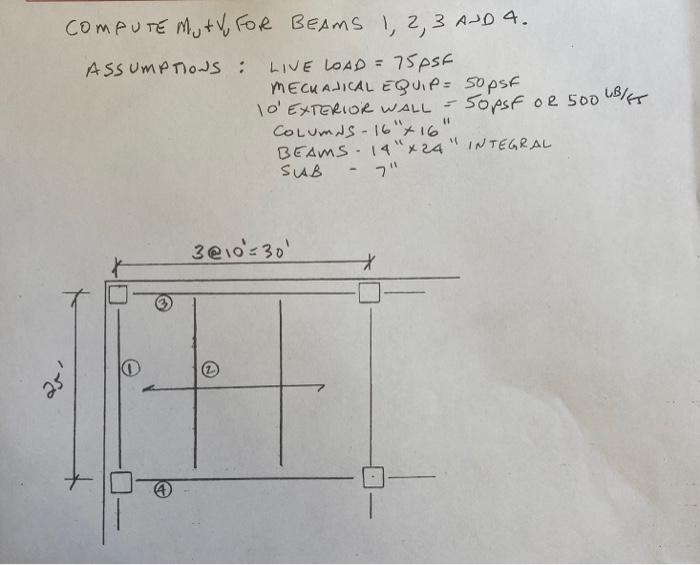 COMPUTE Mu + Vu FOR BEAMS 1, 2, 3 AND 4.
ASSUMPTIONS : LIVE LOAD = 75 PSF
MECHANICAL EQUIP = 50 PSF
10' EXTERIOR WALL = 50 PSF OR 500 LB/FT
COLUMNS - 16" x 16"
BEAMS - 14" x 24" INTEGRAL
SLAB - 7"
3@10' = 30'
3
1
2
25'
4